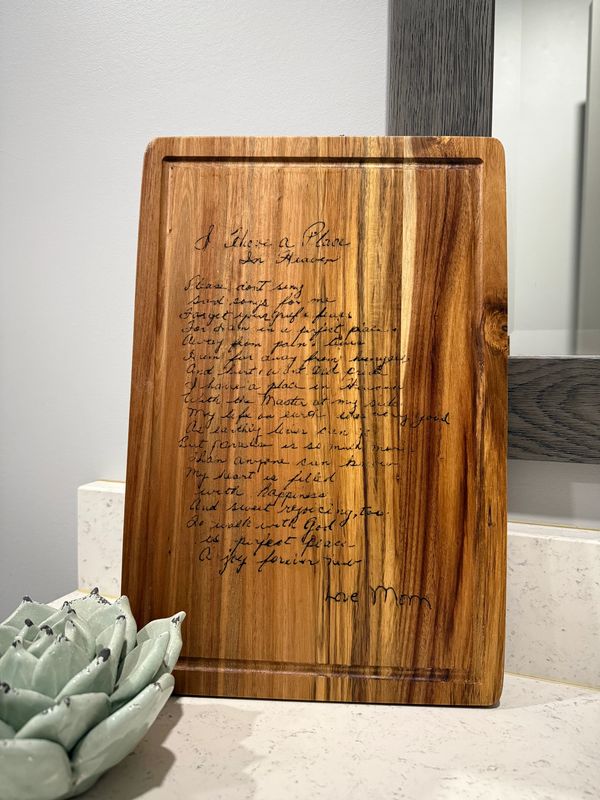 I Have a Place
In Heaven
Please dont sing
sad songs for me
Forget your grief & fears
For I am in a perfect place
Away from pain & tears
I am far away from hunger
And hurt want and pride
I have a place in Heaven
With the Master at my side
My life on earth was very good
As earthly lives can go
But paradise is so much more
Than anyone can know
My heart is filled
with happiness
And sweet rejoicing, too.
To walk with God
is perfect peace
A joy forever new
Love Mom